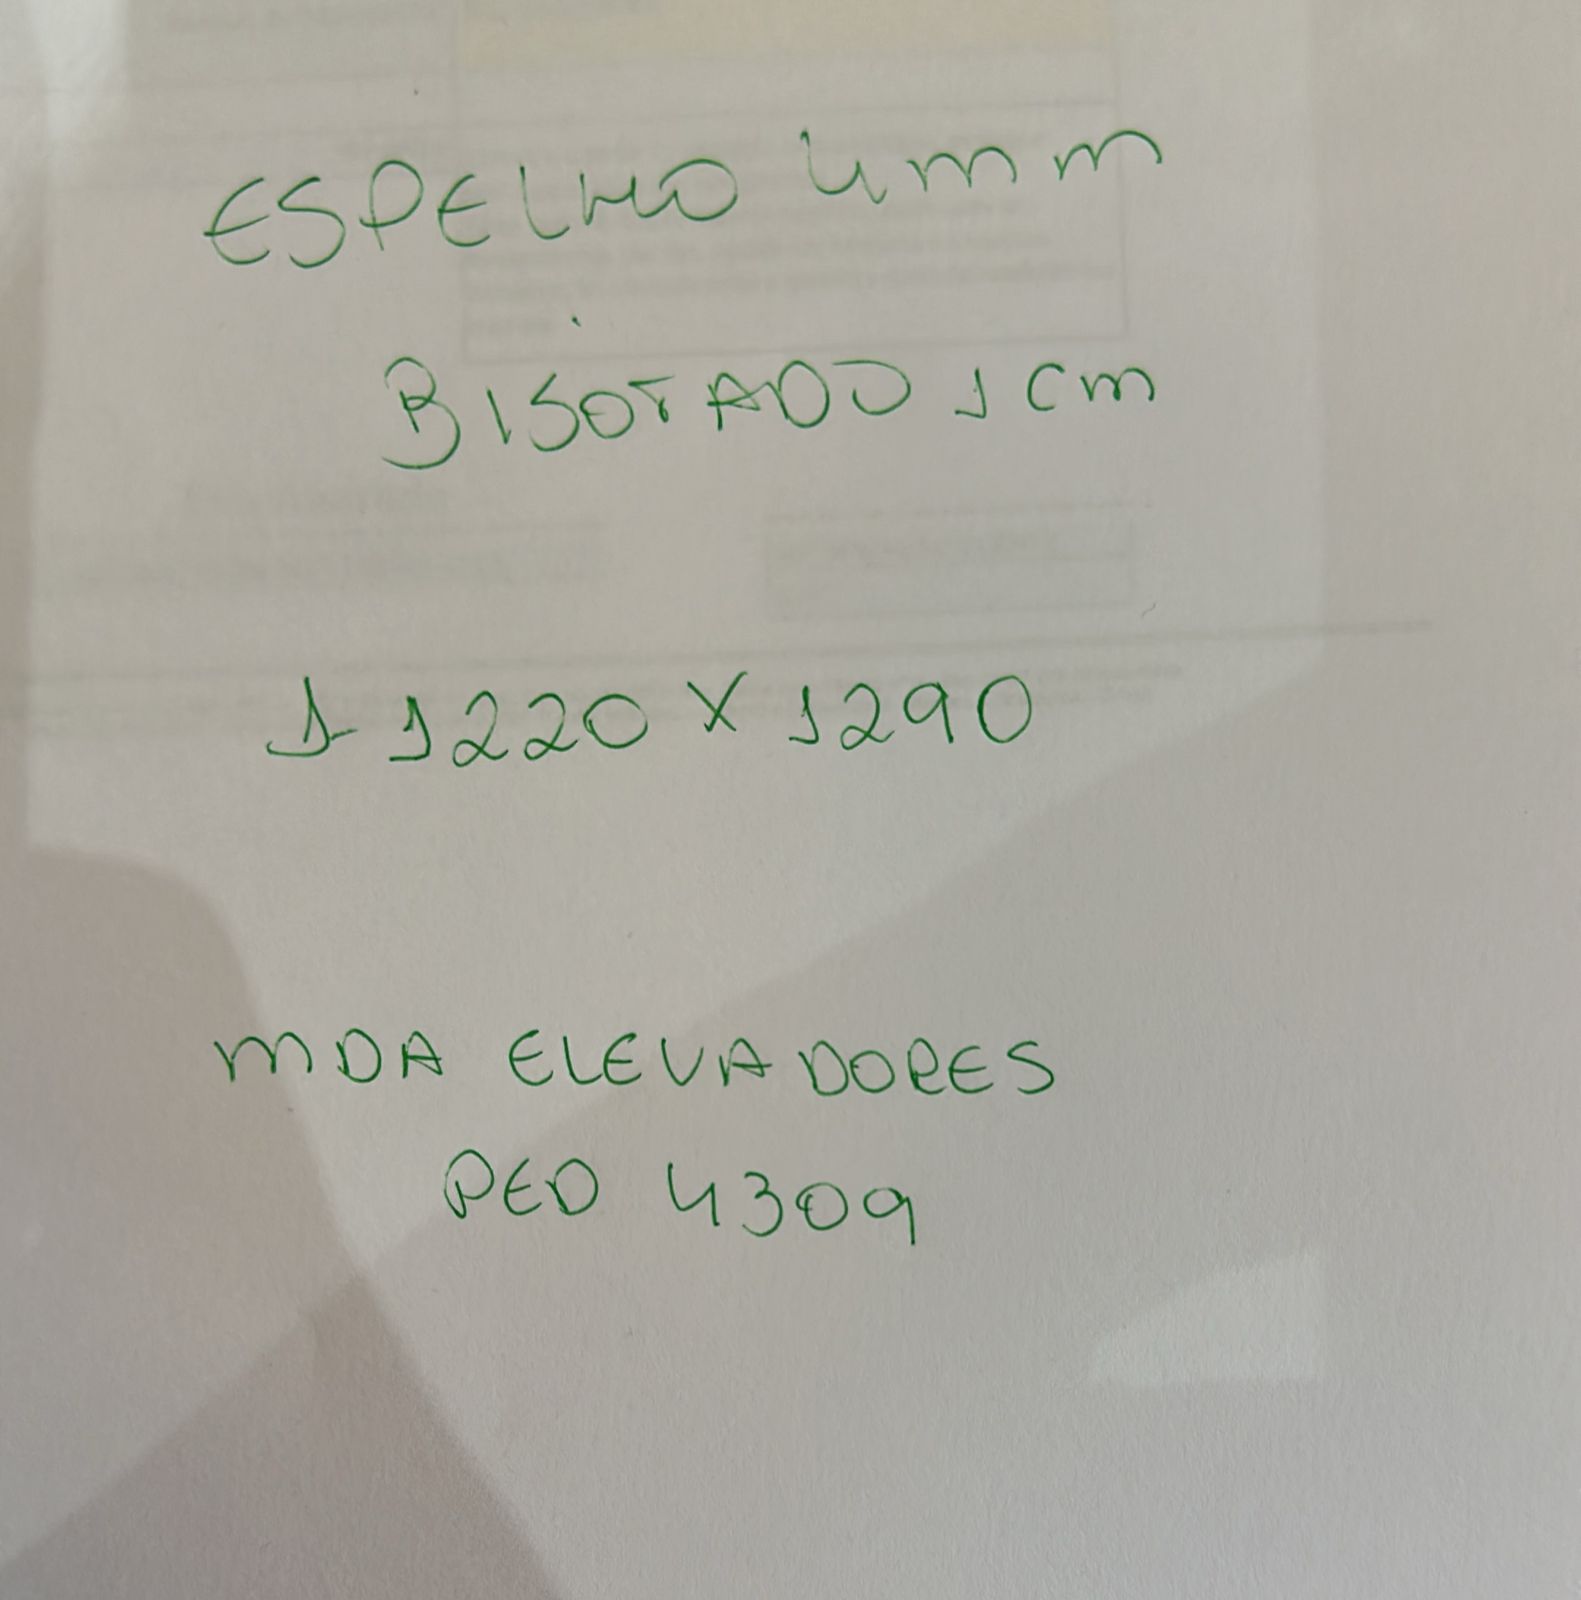 ESPELHO 4mm
BISOTADO 1 cm
1- 1220 X 1290
MDA ELEVADORES
PED 4309